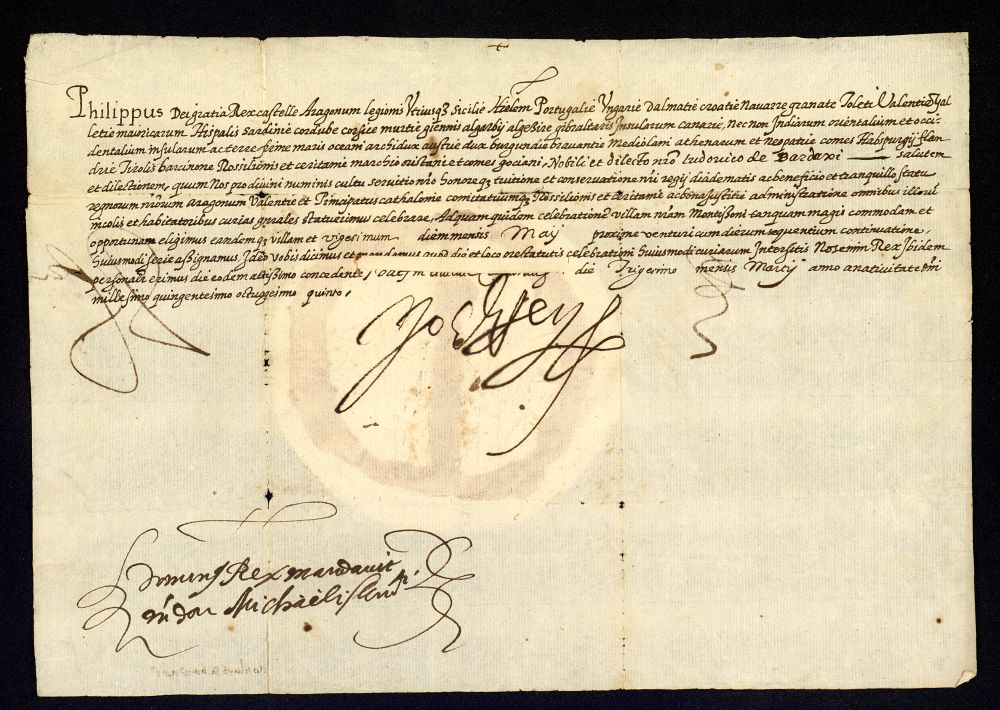 Philippus Dei gratia Rex castelle Aragonum legionis Utriusqz Sicilie Hierlem Portugalie Ungarie Dalmatie croatie Navarre granate Toleti Valentie Gal
letie maioricarum Hispalis sardinie cordube corsice murtie giennis algarbij algezire gibraltaris Insularum canarie, nec non Indiarum orientalium et occi-
dentalium insularum ac terre firme maris oceani archidux austrie dux burgundie bravantie mediolani athenarum et neopatrie comes Habspurgij flan
drie Tirolis barcinone Rosilionis et ceritanie marchio oristani et comes gociani, Nobili et dilecto nro ludovico de Bardaxi salutem
et dilectionem, quum Nos pro divini numinis cultu servitio nro honoreqz tuitione et conservatione nri regij diadematis ac beneficio et tranquillo statu
regnorum nrorum aragonum Valentie et Principatus cathalonie comitatuumqz Rossilionis et ceritanie ac bona justitie administratione omnibus illoru
incolis et habitatoribus curias gnrales statuerimus celebrare, Ad quam quidem celebratione villam nram Montissoni tanquam magis commodam et
opportunam eligimus eandemqz villam et vigesimum diem mensis Maij proxime venturi cum dierum sequentium continuatione,
huiusmodi serie assignamus. Ideo vobis dicimus et mandamus quod die et loco prestatutis celebrationi huiusmodi curiarum Intersitis Nos enim Rex Ibidem
personaliter erimus die eodem altissimo concedente, Dat die Trigesimo mensis Martij anno a nativitate Dni
millessimo quingentesimo octuagesimo quinto,
Yo el Rey
Dominus Rex mandavit
mi don Michaeli